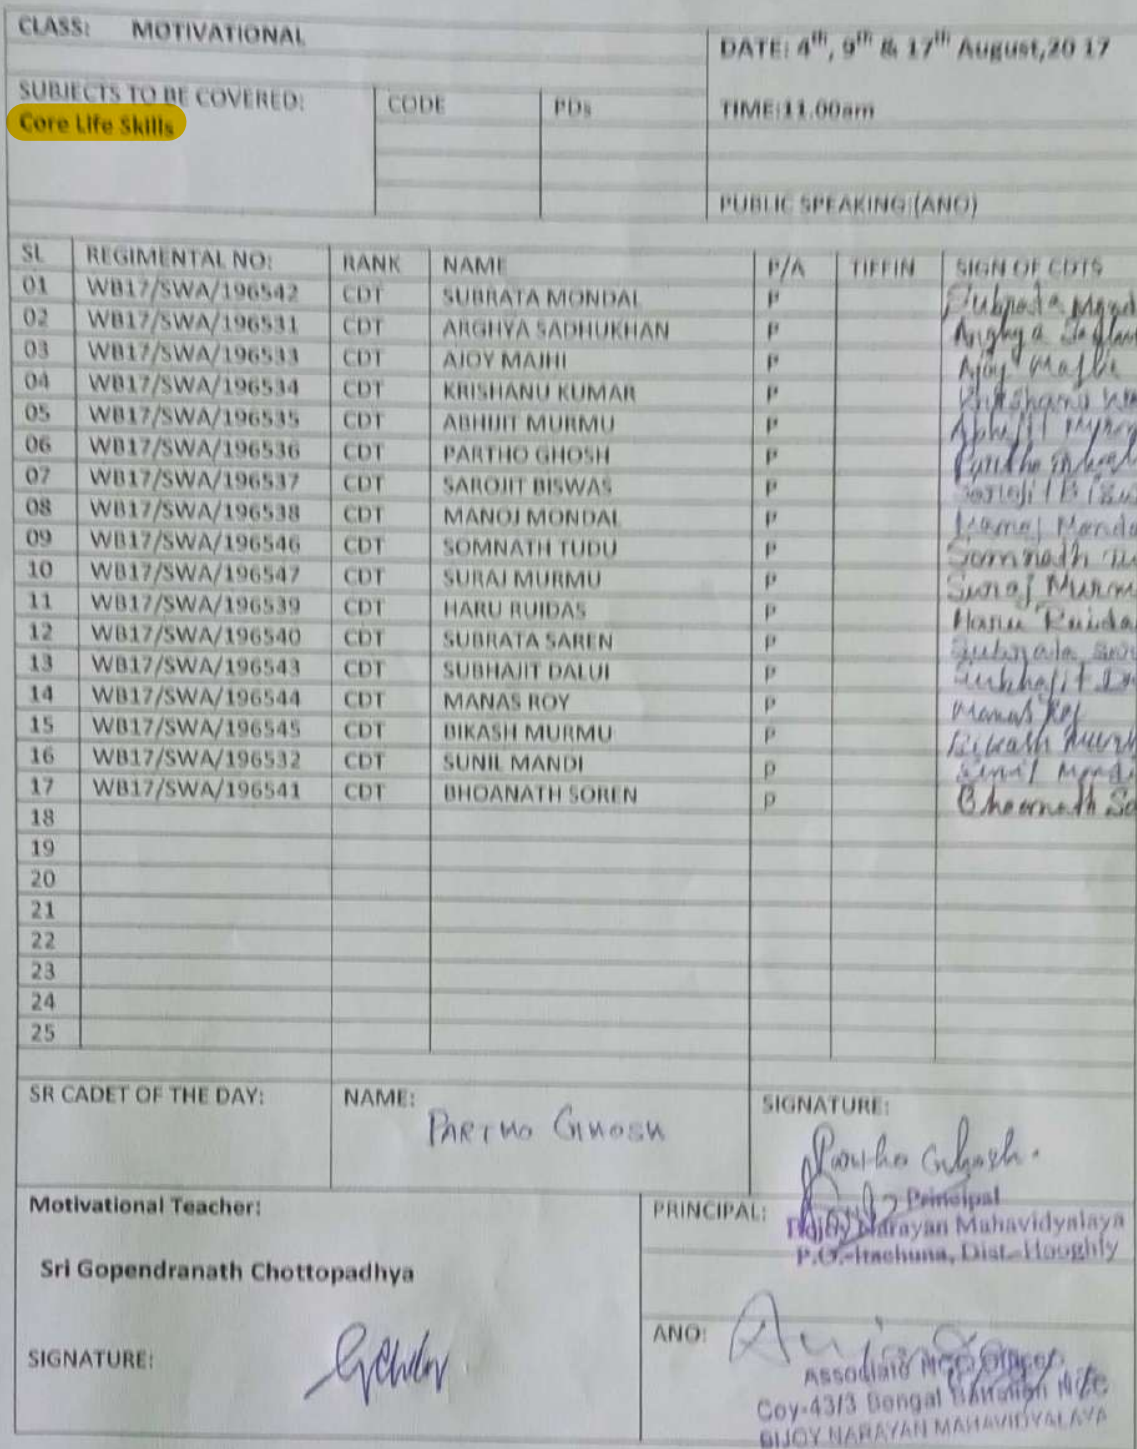 CLASS: MOTIVATIONAL
DATE: 4th, 9th & 17th August,20 17
SUBJECTS TO BE COVERED:
Core Life Skills
CODE
PDs
TIME:11.00am
PUBLIC SPEAKING:(ANO)
SL REGIMENTAL NO: RANK NAME P/A TIFFIN SIGN OF CDTS
01 WB17/SWA/196542 CDT SUBRATA MONDAL P Subrata
02 WB17/SWA/196531 CDT ARGHYA SADHUKHAN P Arghya
03 WB17/SWA/196533 CDT AJOY MAJHI P Ajoy Majhi
04 WB17/SWA/196534 CDT KRISHANU KUMAR P Krishanu
05 WB17/SWA/196535 CDT ABHIJIT MURMU P Abhijit
06 WB17/SWA/196536 CDT PARTHO GHOSH P Partho
07 WB17/SWA/196537 CDT SAROJIT BISWAS P
08 WB17/SWA/196538 CDT MANOJ MONDAL P Manoj Monda
09 WB17/SWA/196546 CDT SOMNATH TUDU P Somnath
10 WB17/SWA/196547 CDT SURAJ MURMU P Suraj Murm
11 WB17/SWA/196539 CDT HARU RUIDAS P Haru Ruida
12 WB17/SWA/196540 CDT SUBRATA SAREN P Subrata
13 WB17/SWA/196543 CDT SUBHAJIT DALUI P Subhajit
14 WB17/SWA/196544 CDT MANAS ROY P Manas Roy
15 WB17/SWA/196545 CDT BIKASH MURMU P Bikash
16 WB17/SWA/196532 CDT SUNIL MANDI P Sunil
17 WB17/SWA/196541 CDT BHOANATH SOREN P
18
19
20
21
22
23
24
25
SR CADET OF THE DAY:
NAME: PARTHO GHOSH
SIGNATURE:
Partho Ghosh.
Motivational Teacher:
Sri Gopendranath Chottopadhya
SIGNATURE:
PRINCIPAL:
Principal
Bijoy Narayan Mahavidyalaya
P.O.-Itachuna, Dist.-Hooghly
ANO:
Associate NCC Officer
Coy-43/3 Bengal Battalion NCC
BIJOY NARAYAN MAHAVIDYALAYA